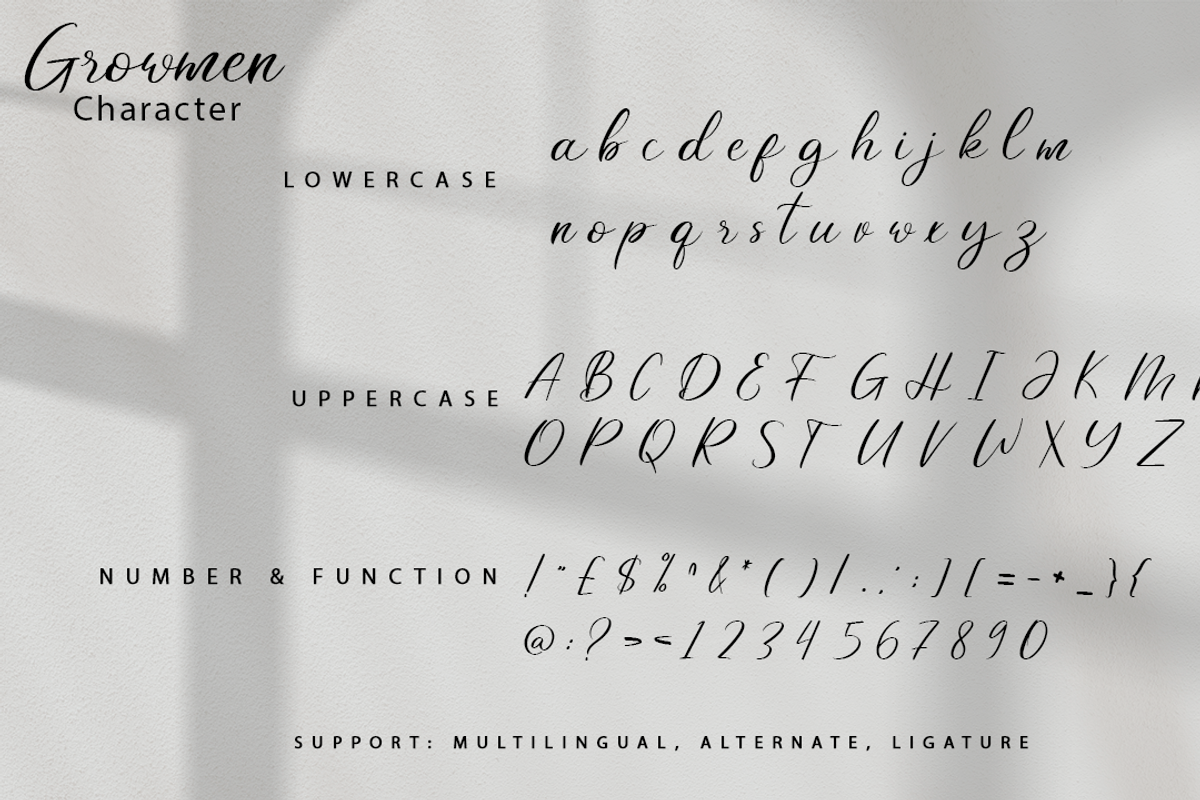 Growmen
Character
LOWERCASE
a b c d e f g h i j k l m
n o p q r s t u v w x y z
UPPERCASE
A B C D E F G H I J K M
O P Q R S T U V W X Y Z
NUMBER & FUNCTION
! " £ $ % ^ & * ( ) / . , ' : ] [ = - + _ } {
@ : ? > < 1 2 3 4 5 6 7 8 9 0
SUPPORT: MULTILINGUAL, ALTERNATE, LIGATURE